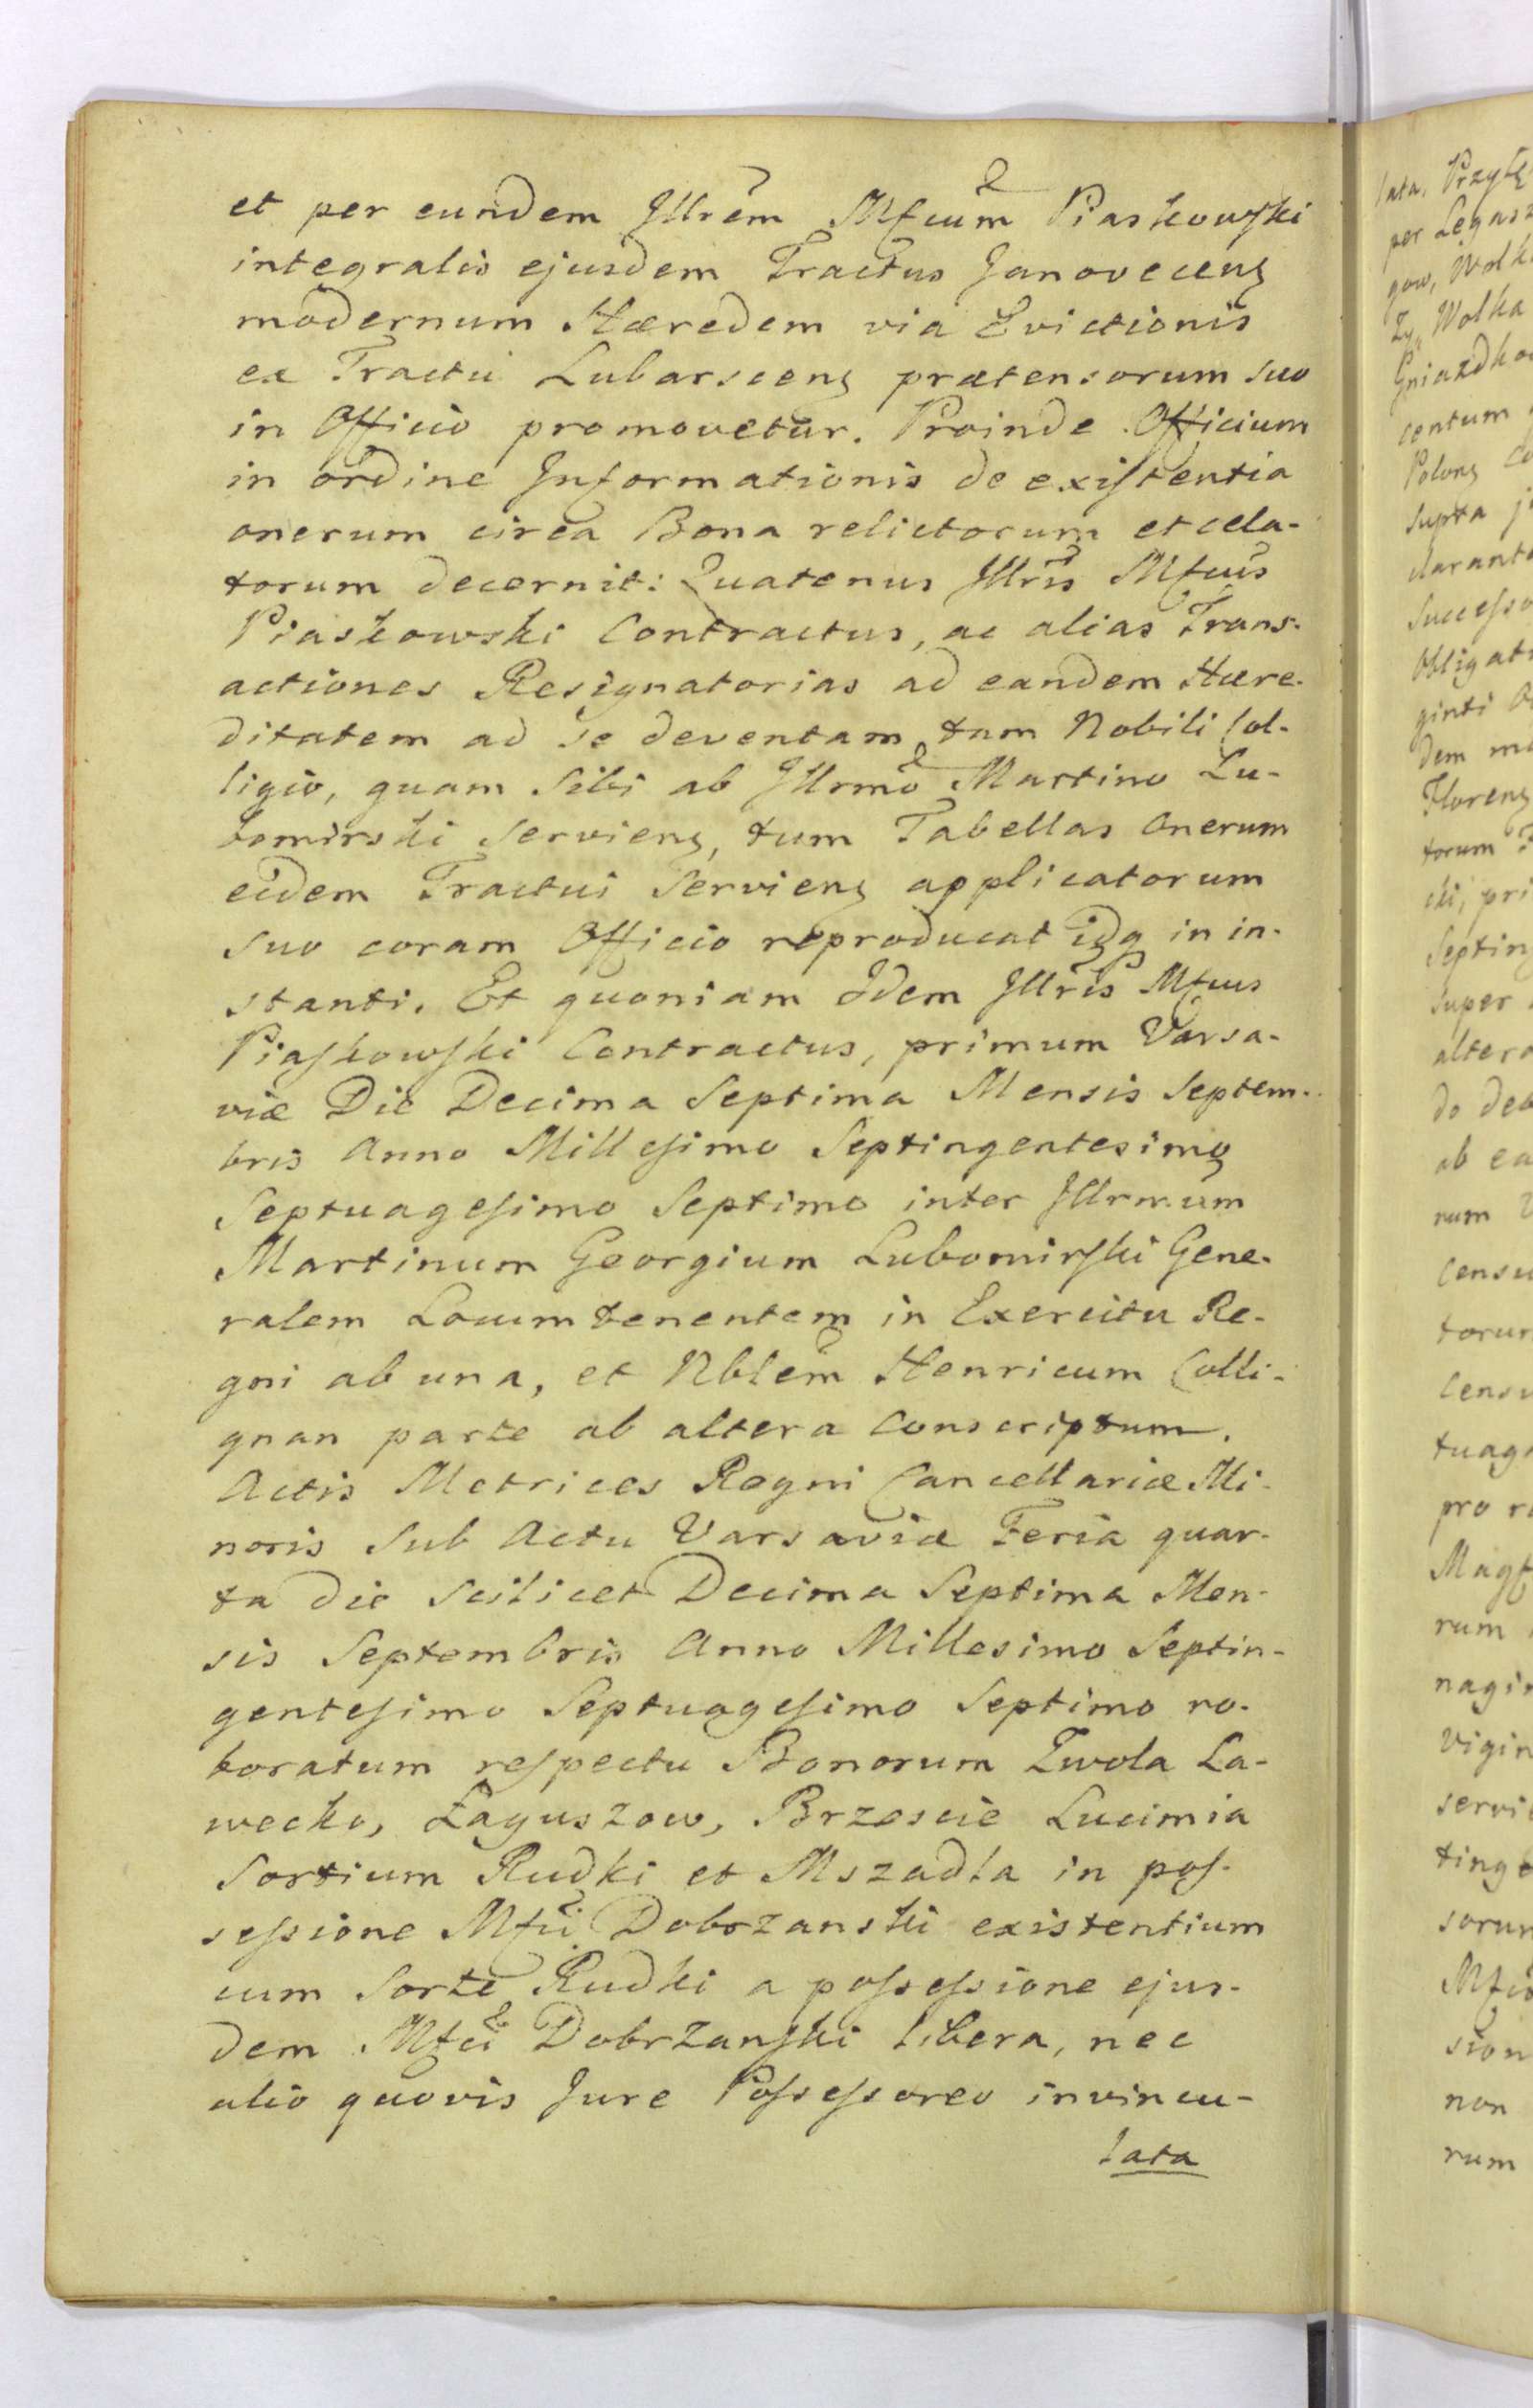 et per eundem Jllrem Mfcum Piaskowski
integralis ejusdem Tractus Janovecens
modernum Hæredem via Evictionis
ex Tractu Lubarscens prætensorum suo
in Officio promovetur. Proinde Officium
in ordine Informationis de existentia
onerum circa Bona relictorum et cela-
torum decernit: Quatenus Jllris Mfcus
Piaskowski Contractus, ac alias Trans-
actiones Resignatorias ad eandem Hære-
ditatem ad se deventam, tam Nobili Col-
ligio, quam Sibi ab Jllrmo Martino Lu-
bomirski Serviens, tum Tabellas Onerum
eidem Tractui Serviens applicatorum
suo coram Officio reproducat idq in in-
stanti. Et quoniam Idem Jllris Mfcus
Piaskowski Contractus, primum Varsa-
viæ Die Decima Septima Mensis Septem-
bris Anno Millesimo Septingentesimo
Septuagesimo Septimo inter Jllrmum
Martinum Georgium Lubomirski Gene-
ralem Locumtenentem in Exercitu Re-
gni ab una, et Nblem Henricum Colli-
gnan parte ab altera Conscriptum.
Actis Metrices Regni Cancellariæ Mi-
noris Sub Actu Varsaviæ Feria quar-
ta die Scilicet Decima Septima Men-
sis Septembris Anno Millesimo Septin-
gentesimo Septuagesimo Septimo ro-
boratum respectu Bonorum Zwola La-
wecko, Łaguszow, Brzescie Lucimia
Sortium Rudki et Mszadla in pos-
sessione Mfci Dobrzanski existentium
cum Sorte Rudki a possessione ejus-
dem Mfci Dobrzanski libera, nec
alio quovis Jure Possessoreo invincu-
lata
lata, Przyłę
per Legasz
gow, Wolk
Zy, Wolka
Gniazdko
Centum
Polons Co
Supra j
clarant
Successo
Obligat
ginti
dem mo
Florens
torum
cki, pri
Septin
super
altera
do deb
ab ea
num
Censu
torum
Censu
tuag
pro r
Magf
rum
nagin
Vigin
servi
tinge
sorum
Mfco
sion
non
rum